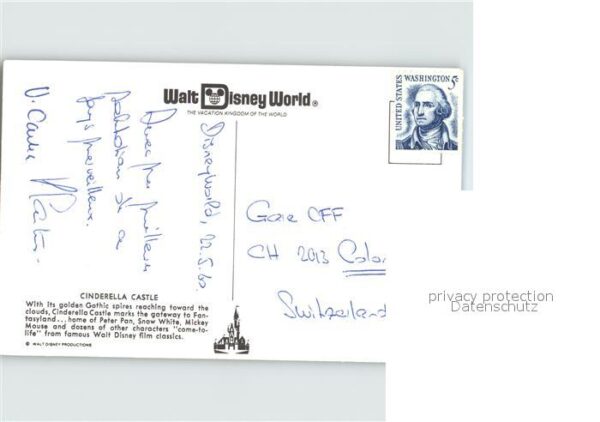 Walt Disney World®
THE VACATION KINGDOM OF THE WORLD
UNITED STATES
WASHINGTON 5c
Disneyworld, 22.5.80
Avec mes meilleures
salutations de ce
pays merveilleux.
Gare CFF
CH 2013 Colom
Switzerland
CINDERELLA CASTLE
With its golden Gothic spires reaching toward the
clouds, Cinderella Castle marks the gateway to Fan-
tasyland...home of Peter Pan, Snow White, Mickey
Mouse and dozens of other characters "come-to-
life" from famous Walt Disney film classics.
© WALT DISNEY PRODUCTIONS
privacy protection
Datenschutz